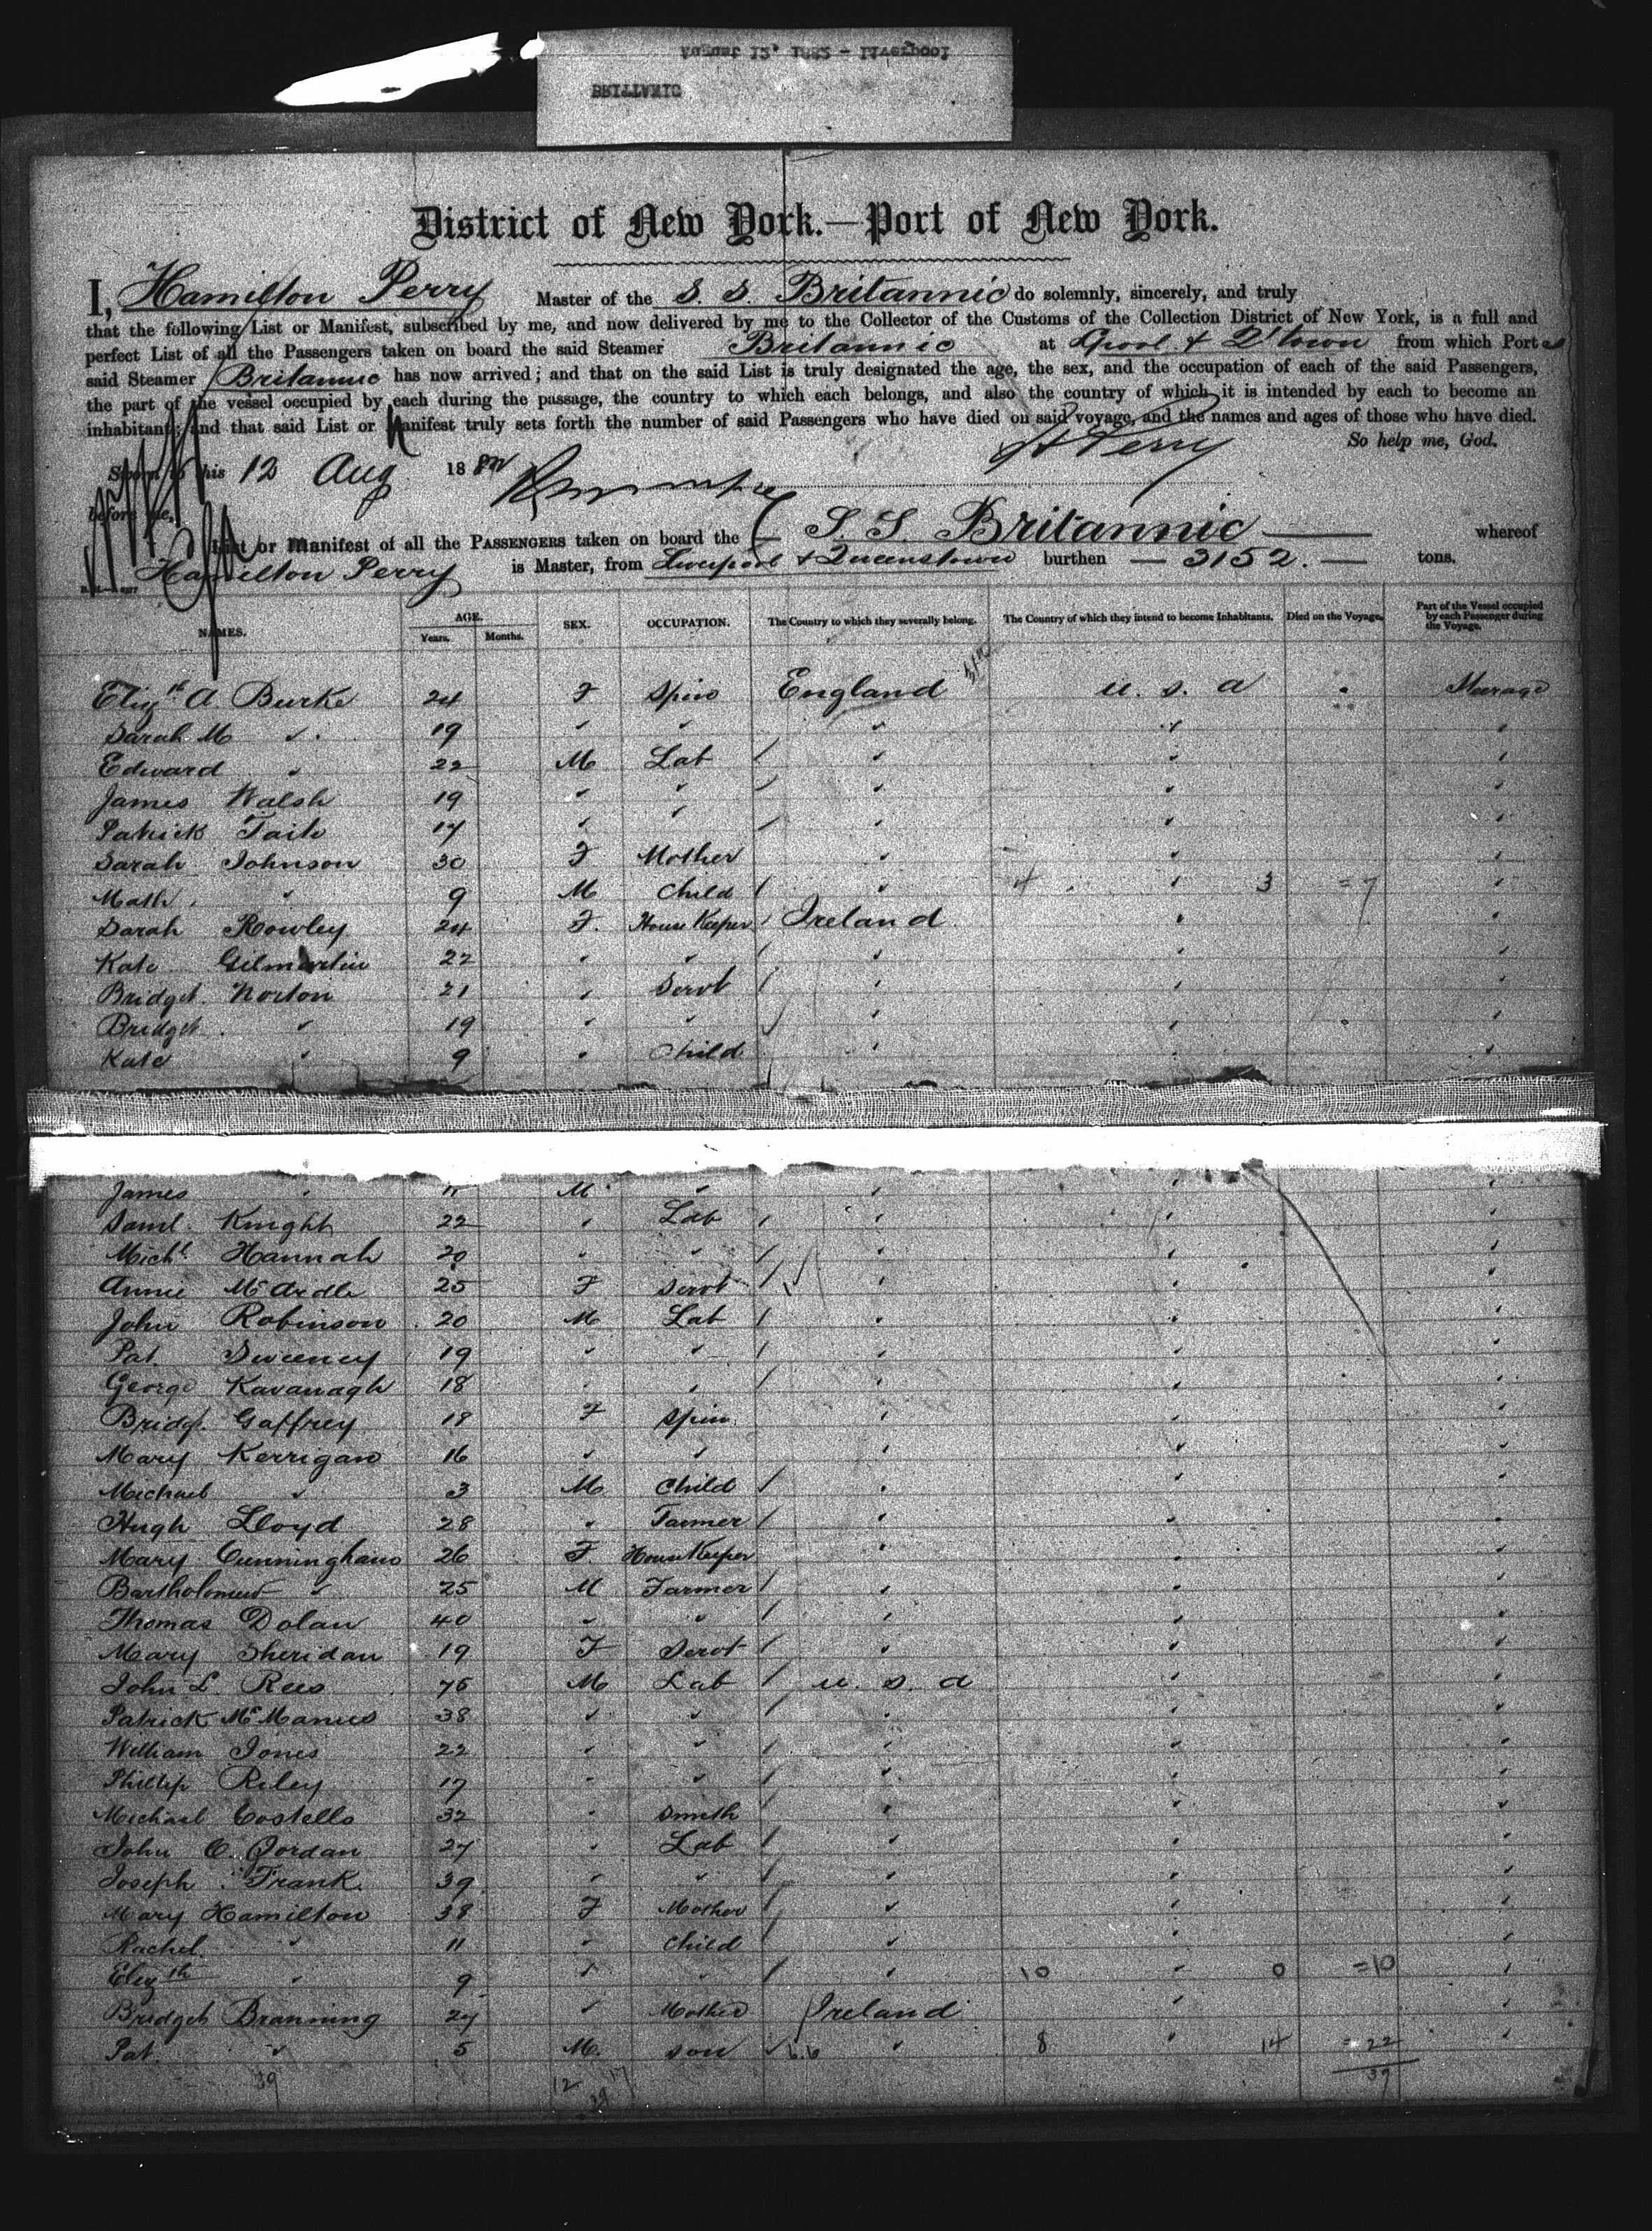 AUGUST 13, 1882 - LIVERPOOL
BRITANNIC
District of New York.—Port of New York.
I, Hamilton Perry Master of the S. S. Britannic do solemnly, sincerely, and truly
that the following List or Manifest, subscribed by me, and now delivered by me to the Collector of the Customs of the Collection District of New York, is a full and
perfect List of all the Passengers taken on board the said Steamer Britannic at Lpool & Q'town from which Port
said Steamer Britannic has now arrived; and that on the said List is truly designated the age, the sex, and the occupation of each of the said Passengers,
the part of the vessel occupied by each during the passage, the country to which each belongs, and also the country of which it is intended by each to become an
inhabitant; and that said List or Manifest truly sets forth the number of said Passengers who have died on said voyage, and the names and ages of those who have died.
So help me, God.
H Perry
Sworn to this 12 Aug 188
before me,
List or Manifest of all the PASSENGERS taken on board the S. S. Britannic whereof
Hamilton Perry is Master, from Liverpool & Queenstown burthen — 3152. — tons.
NAMES. AGE. Years. Months. SEX. OCCUPATION. The Country to which they severally belong. The Country of which they intend to become Inhabitants. Died on the Voyage. Part of the Vessel occupied by each Passenger during the Voyage.
Elizth A. Burke 24 F Spin England U. S. A Steerage
Sarah M " 19 " " " " "
Edward " 22 M Lab " " "
James Walsh 19 " " " " "
Patrick Tait 17 " " " " "
Sarah Johnson 30 F Mother " " "
Math. " 9 M Child " 4 " 3 = 7 "
Sarah Rowley 24 F. House Keeper Ireland " "
Kate Gilmartin 22 " " " " "
Bridget Norton 21 " Servt " " "
Bridget " 19 " " " " "
Kate " 9 " Child " " "
James " 11 M " " " "
Saml. Knight 22 " Lab " " "
Michl Hannah 20 " " " " "
Annie McArdle 25 F Servt " " "
John Robinson 20 M Lab " " "
Pat. Sweeney 19 " " " " "
George Kavanagh 18 " " " " "
Bridgt. Gaffrey 18 F Spin " " "
Mary Kerrigan 16 " " " " "
Michael " 3 M Child " " "
Hugh Lloyd 28 " Farmer " " "
Mary Cunningham 26 F. House Keeper " " "
Bartholomew " 25 M Farmer " " "
Thomas Dolan 40 " " " " "
Mary Sheridan 19 F Servt " " "
John L. Rees 75 M Lab U. S. A " "
Patrick McManus 38 " " " " "
William Jones 22 " " " " "
Phillip Riley 17 " " " " "
Michael Costello 32 " Smith " " "
John C. Jordan 27 " Lab " " "
Joseph Frank 39 " " " " "
Mary Hamilton 38 F Mother " " "
Rachel " 11 " Child " " "
Elizth " 9 " " " 10 " 0 =10 "
Bridget Branning 27 " Mother Ireland " "
Pat. " 5 M. Son " 8 " 14 = 22 "
39 12 39 17 39